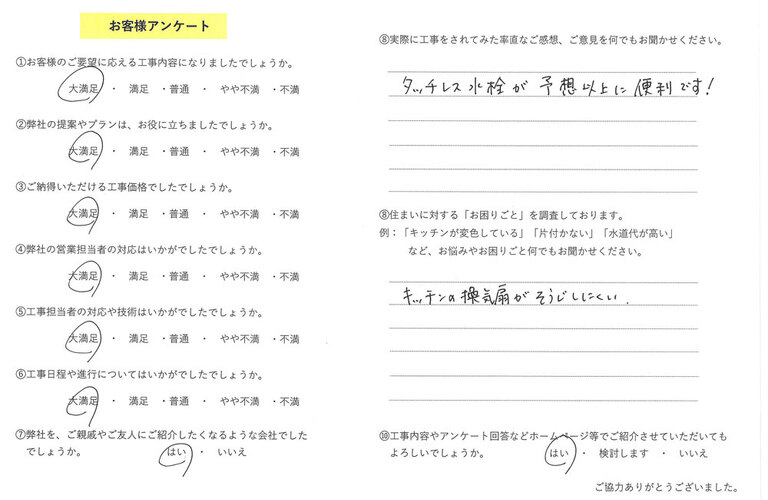 お客様アンケート
①お客様のご要望に応える工事内容になりましたでしょうか。
大満足 ・ 満足 ・普通 ・ やや不満 ・不満
②弊社の提案やプランは、お役に立ちましたでしょうか。
大満足 ・ 満足 ・普通 ・ やや不満 ・不満
③ご納得いただける工事価格でしたでしょうか。
大満足 ・ 満足 ・普通 ・ やや不満 ・不満
④弊社の営業担当者の対応はいかがでしたでしょうか。
大満足 ・ 満足 ・普通 ・ やや不満 ・不満
⑤工事担当者の対応や技術はいかがでしたでしょうか。
大満足 ・ 満足 ・普通 ・ やや不満 ・不満
⑥工事日程や進行についてはいかがでしたでしょうか。
大満足 ・ 満足 ・普通 ・ やや不満 ・不満
⑦弊社を、ご親戚やご友人にご紹介したくなるような会社でした
でしょうか。 はい ・ いいえ
⑧実際に工事をされてみた率直なご感想、ご意見を何でもお聞かせください。
タッチレス水栓が予想以上に便利です!
⑧住まいに対する「お困りごと」を調査しております。
例：「キッチンが変色している」「片付かない」「水道代が高い」
など、お悩みやお困りごと何でもお聞かせください。
キッチンの換気扇がそうじしにくい.
⑩工事内容やアンケート回答などホームページ等でご紹介させていただいても
よろしいでしょうか。 はい ・ 検討します ・ いいえ
ご協力ありがとうございました。